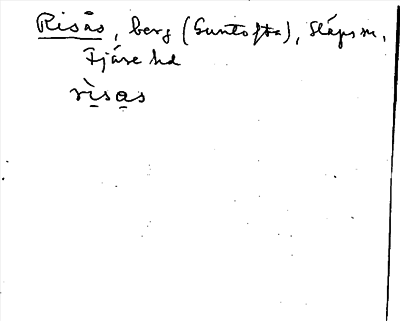 Risås, berg (Guntofta), Släps sn,
Fjäre hd
rìsas